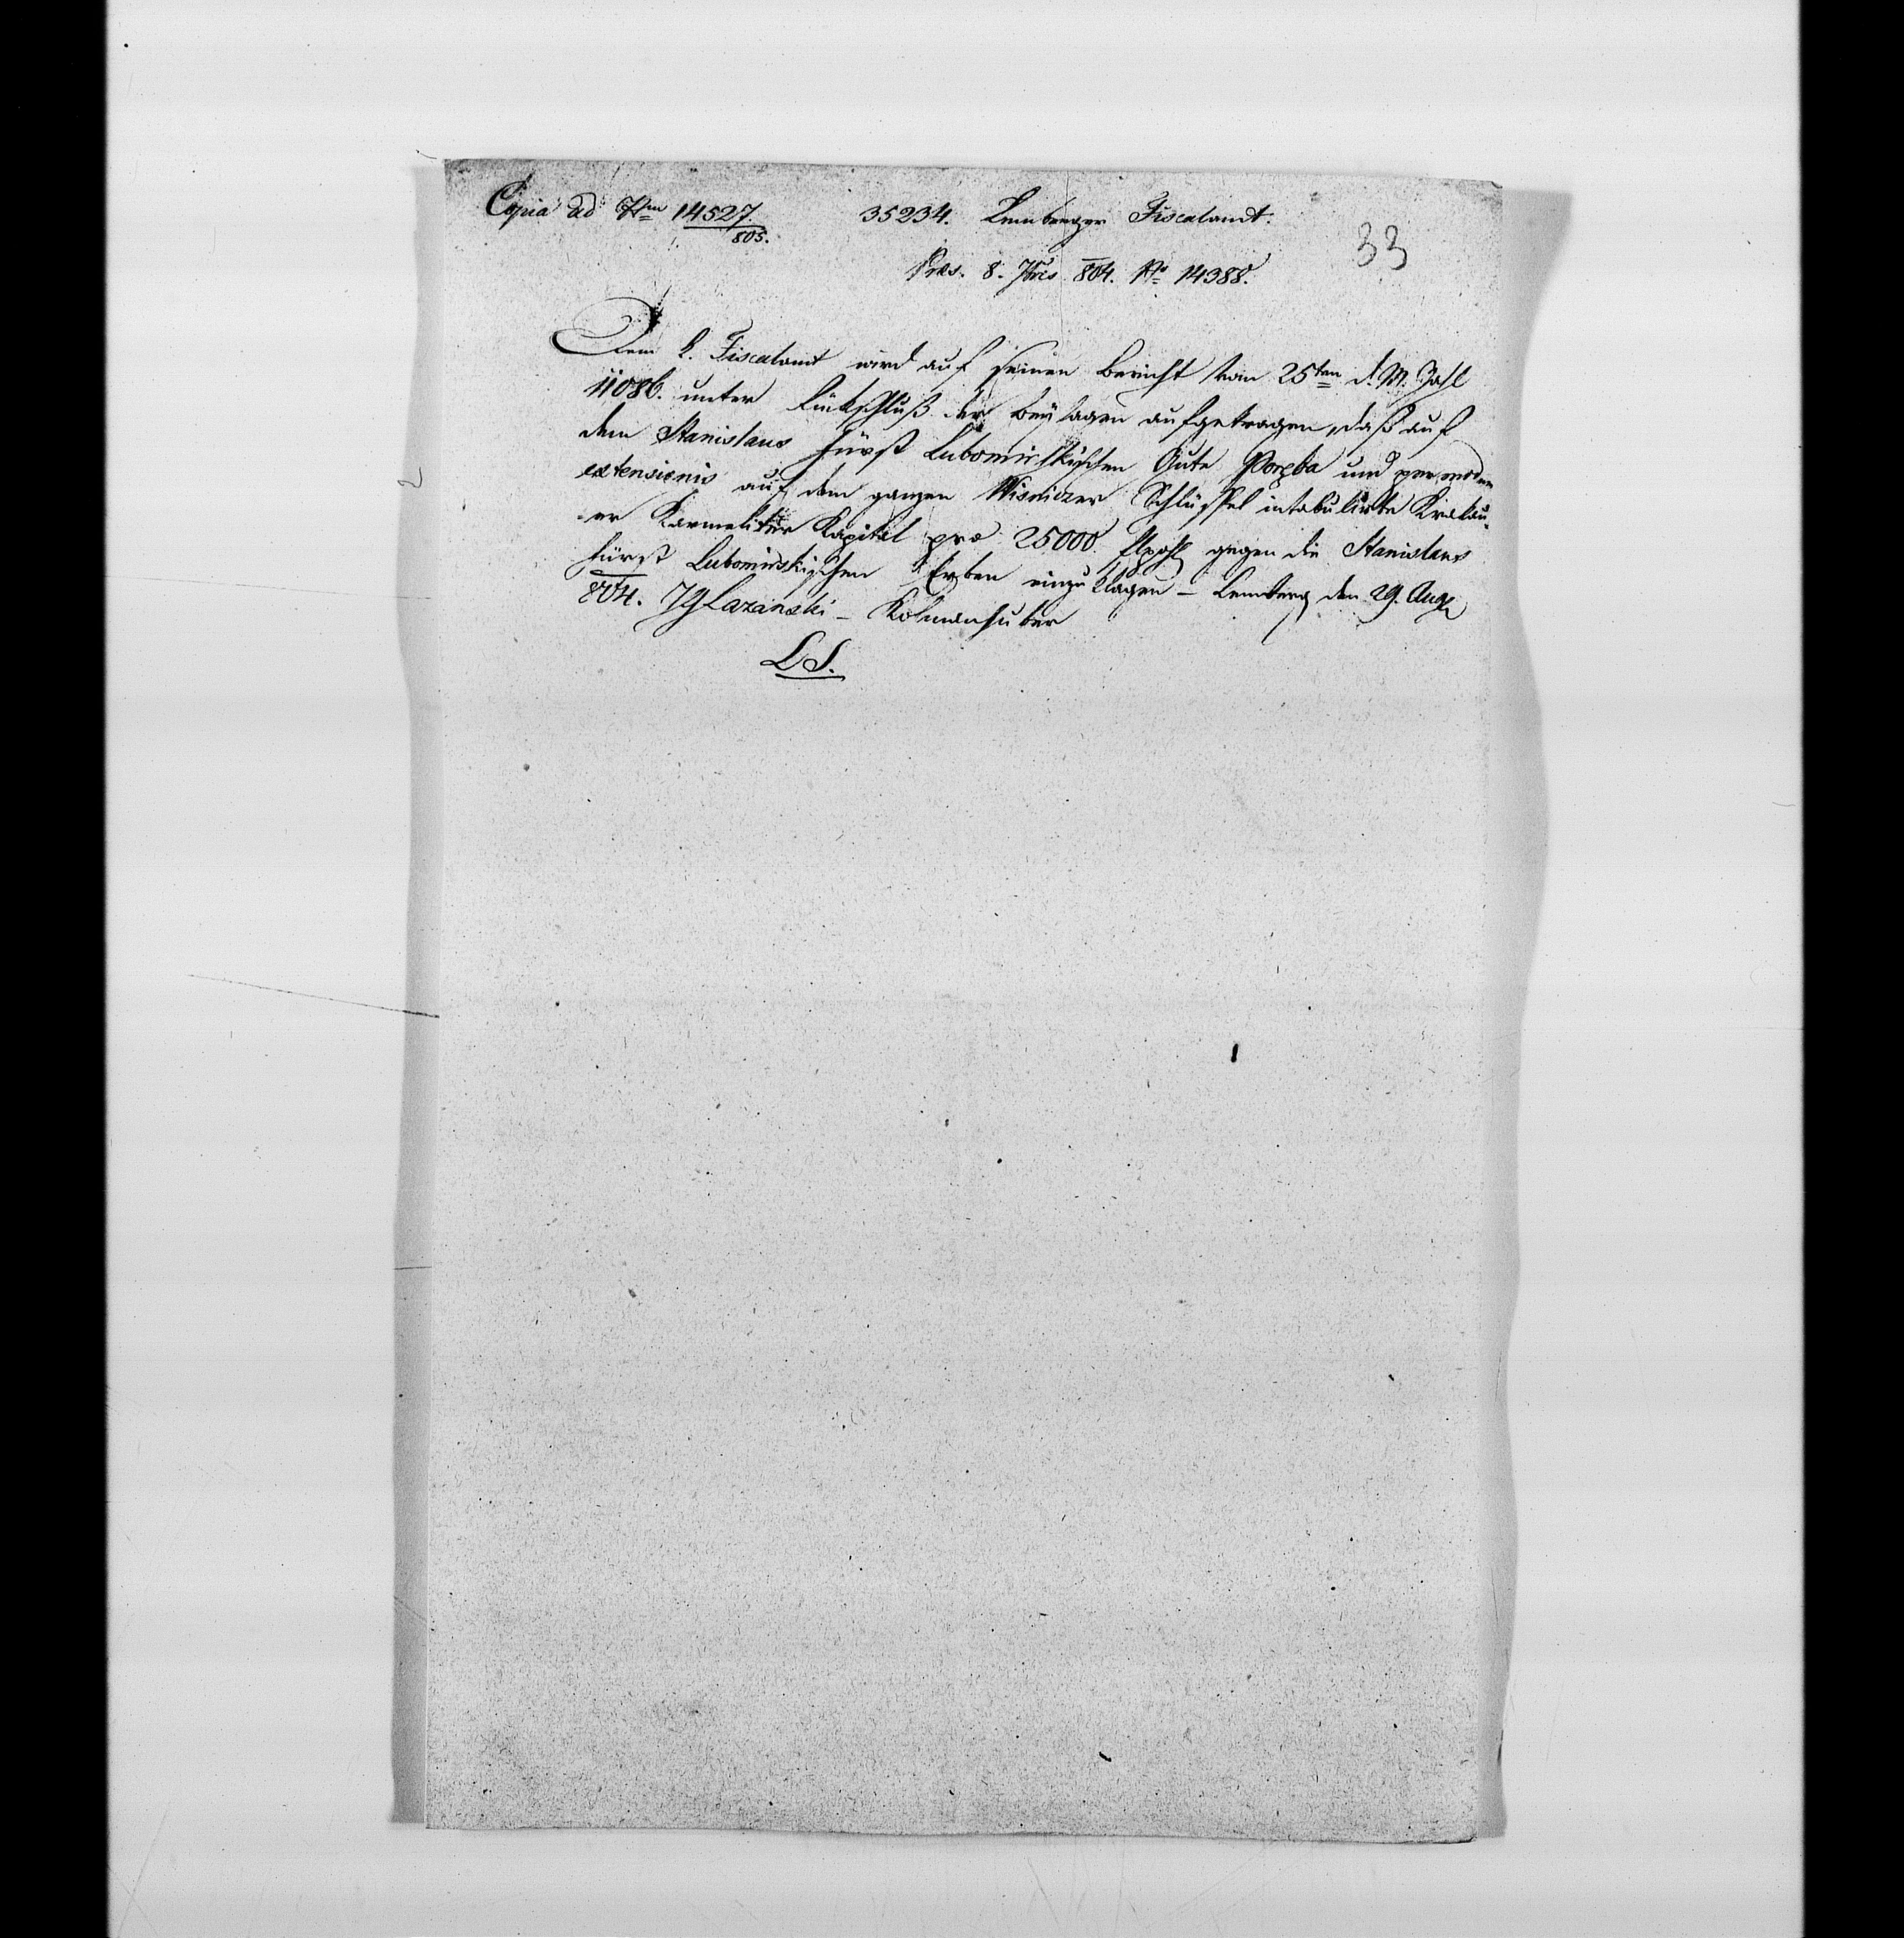 Copia ad Nrm 14527./805. 35234. Lemberger Fiscalamt.
33
Præs. 8. 7bris 804. No 14388.
Dem k. Fiscalamt wird auf seinen Bericht vom 25ten d. M. Zahl
11086. unter Rükschluß der Beylagen aufgetragen, daß auf
dem Stanislaus Fürst Lubomirskischen Gute Poręba und per modum
extensionis auf dem ganzen Wisniczer Schlüssel intabulirte Krakau-
er Karmeliter Kapital pro 25000. flpohl gegen die Stanislaus
Fürst Lubomirskischen Erben einzuklagen – Lemberg den 29. Aug
804. Lazanski – Kolmanhuber
LS.